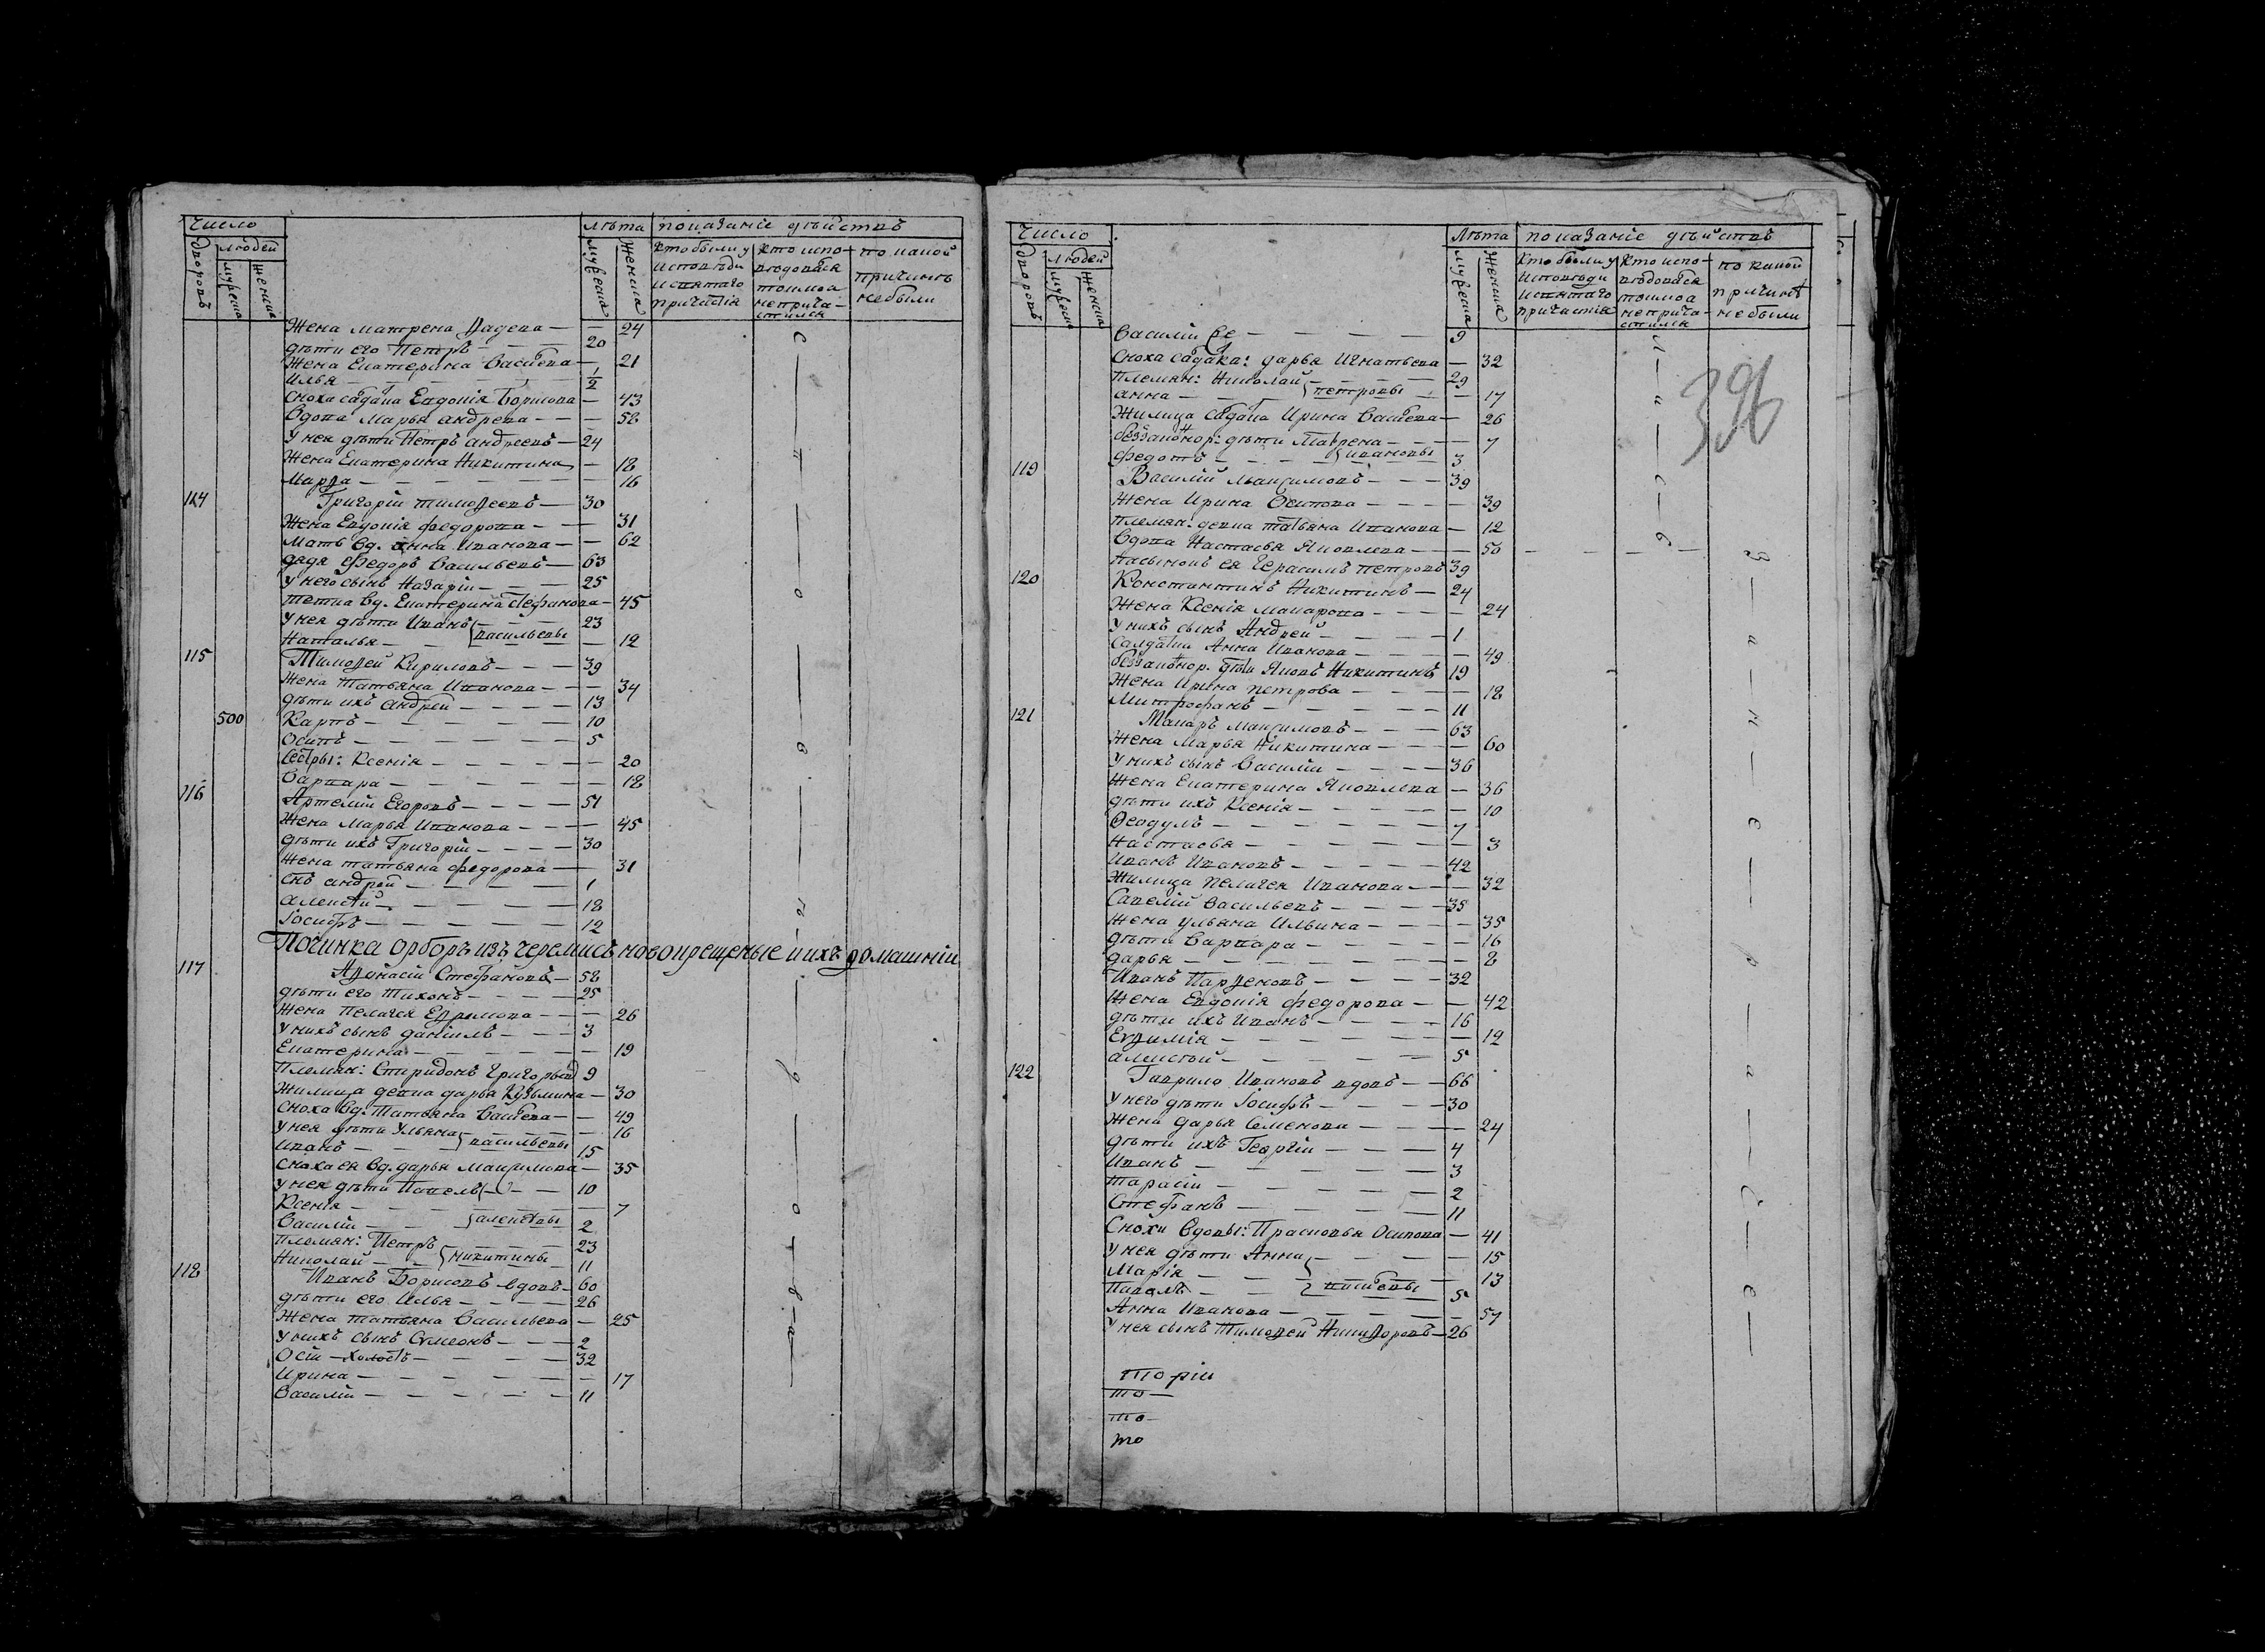 Число
лѣта показаніе дѣйствъ
дворовъ
людей
мужеска
женска
мужеска
женска
Кто были у исповѣди и святаго причастія
Кто исповѣдовался токмоа непричастился
по какой причинѣ небыли
Жена матрена Фадева — — 24
дѣти его Петръ — — 20
Жена Екатерина Васильева — 21
Илья — — — 1/2
сноха салдатка Евдокія Борисова — 43
Вдова Марья андрева — — 58
У нея дѣти Петръ андреевъ — 24
Жена Екатерина Никитина — 18
Марфа — — — — 16
114 Григорій тимофеевъ — 30
Жена Евдокія федорова — — 31
Мать вд. анна иванова — — 62
дядя Федоръ Васильевъ — 63
У него сынъ Назарій — — 25
тетка вд. Екатерина Стефанова — 45
У нея дѣти Иванъ — — 23
Наталья — васильевы — 12
115 Тимофей Кириловъ — — 39
Жена Татьяна Иванова — — 34
дѣти ихъ андрей — — — 13
500 Карпъ — — — — 10
Осипъ — — — — 5
Сестры: Ксенія — — — — 20
Варвара — — — — 18
116 Артемій Егоровъ — — — 51
Жена Марья Иванова — — — 45
дѣти ихъ Григорій — — — 30
Жена татьяна федорова — — 31
снъ андрей — — — — 1
алексѣй — — — — 18
Іосифъ — — — — 12
Починка Орборъ изъ черемисъ новокрещеные и ихъ домашніи
117 Афонасій Стефановъ — 58
дѣти его Тихонъ — — — 25
Жена Пелагея Ефремова — — 26
У нихъ сынъ даніилъ — — — 3
Екатерина — — — — 19
Племян: Спиридонъ Григорьевъ 9
Жилица девка дарья Кузьмина — 30
Сноха вд. Татьяна Васильева — 49
У нея дѣти Ульяна — — 16
Иванъ — — васильевы 15
Сноха ея вд. дарья Максимова — 35
У нея дѣти Павелъ — — 10
Ксенія — — — — 7
Василій — — алексѣевы 2
Племян: Петръ — — 23
Николай — — никитины 11
118 Иванъ Борисовъ вдовъ — 60
дѣти его Илья — — — 26
Жена татьяна Васильева — 25
У нихъ сынъ Симеонъ — — 2
Осіи — холостъ — — — 32
Ирина — — — — — 17
Василій — — — — — 11
Число
Лѣта показаніе дѣйствъ
дворовъ
людей
мужеска
женска
мужеска
женска
Кто были у исповѣди и святаго причастія
Кто исповѣдовался токмоа непричастился
по какой причинѣ небыли
396
Василій — — — — 9
Сноха салдатка: дарья Игнатьева — 32
Племян: Николай — — — 29
анна — — петровы — 17
Жилица салдатка Ирина Васильева — 26
беззаконнор: дѣти Маврена — — 7
Федотъ — — ивановы 3
119 Василій Максимовъ — — — 39
Жена Ирина Осипова — — — 39
Племян: девка татьяна Иванова — 12
Вдова Настасья Яковлева — — 50
пасынокъ ея Герасимъ петровъ 39
120 Константинъ Никитинъ — 24
Жена Ксенія макарова — — — 24
У нихъ сынъ Андрей — — — 1
Салдатка Анна Иванова — — — 49
беззаконнор. дѣти Яковъ Никитинъ 19
Жена Ирина петрова — — — 18
Митрофанъ — — — — 11
121 Макаръ максимовъ — — — 63
Жена Марья Никитина — — — 60
У нихъ сынъ Василій — — — 36
Жена Екатерина Яковлева — 36
дѣти ихъ Ксенія — — — — 10
Феодулъ — — — — — 7
Настасья — — — — — 3
Иванъ Ивановъ — — — — 42
Жилица Пелагея Иванова — — 32
Савелій Васильевъ — — — 35
Жена Ульяна Ильина — — — 35
дѣти Варвара — — — — 16
дарья — — — — — 8
Иванъ Парфеновъ — — — 32
Жена Евдокія федорова — — 42
дѣти ихъ Иванъ — — — — 16
Евфимія — — — — — 12
алексѣй — — — — — 5
122 Гаврило Ивановъ вдовъ — — 66
У него дѣти Іосифъ — — — 30
Жена дарья Семенова — — — 24
дѣти ихъ Георгій — — — 4
Иванъ — — — — — 3
Тарасій — — — — — 2
Стефанъ — — — — — 11
Снохи Вдовы: Прасковья Осипова — 41
У нея дѣти Анна — — — 15
Марія — — — — 13
Павелъ — — 5
Анна Иванова — — — — 57
У нея сынъ Тимофей Никифоровъ — 26
торіи
то —
то —
то